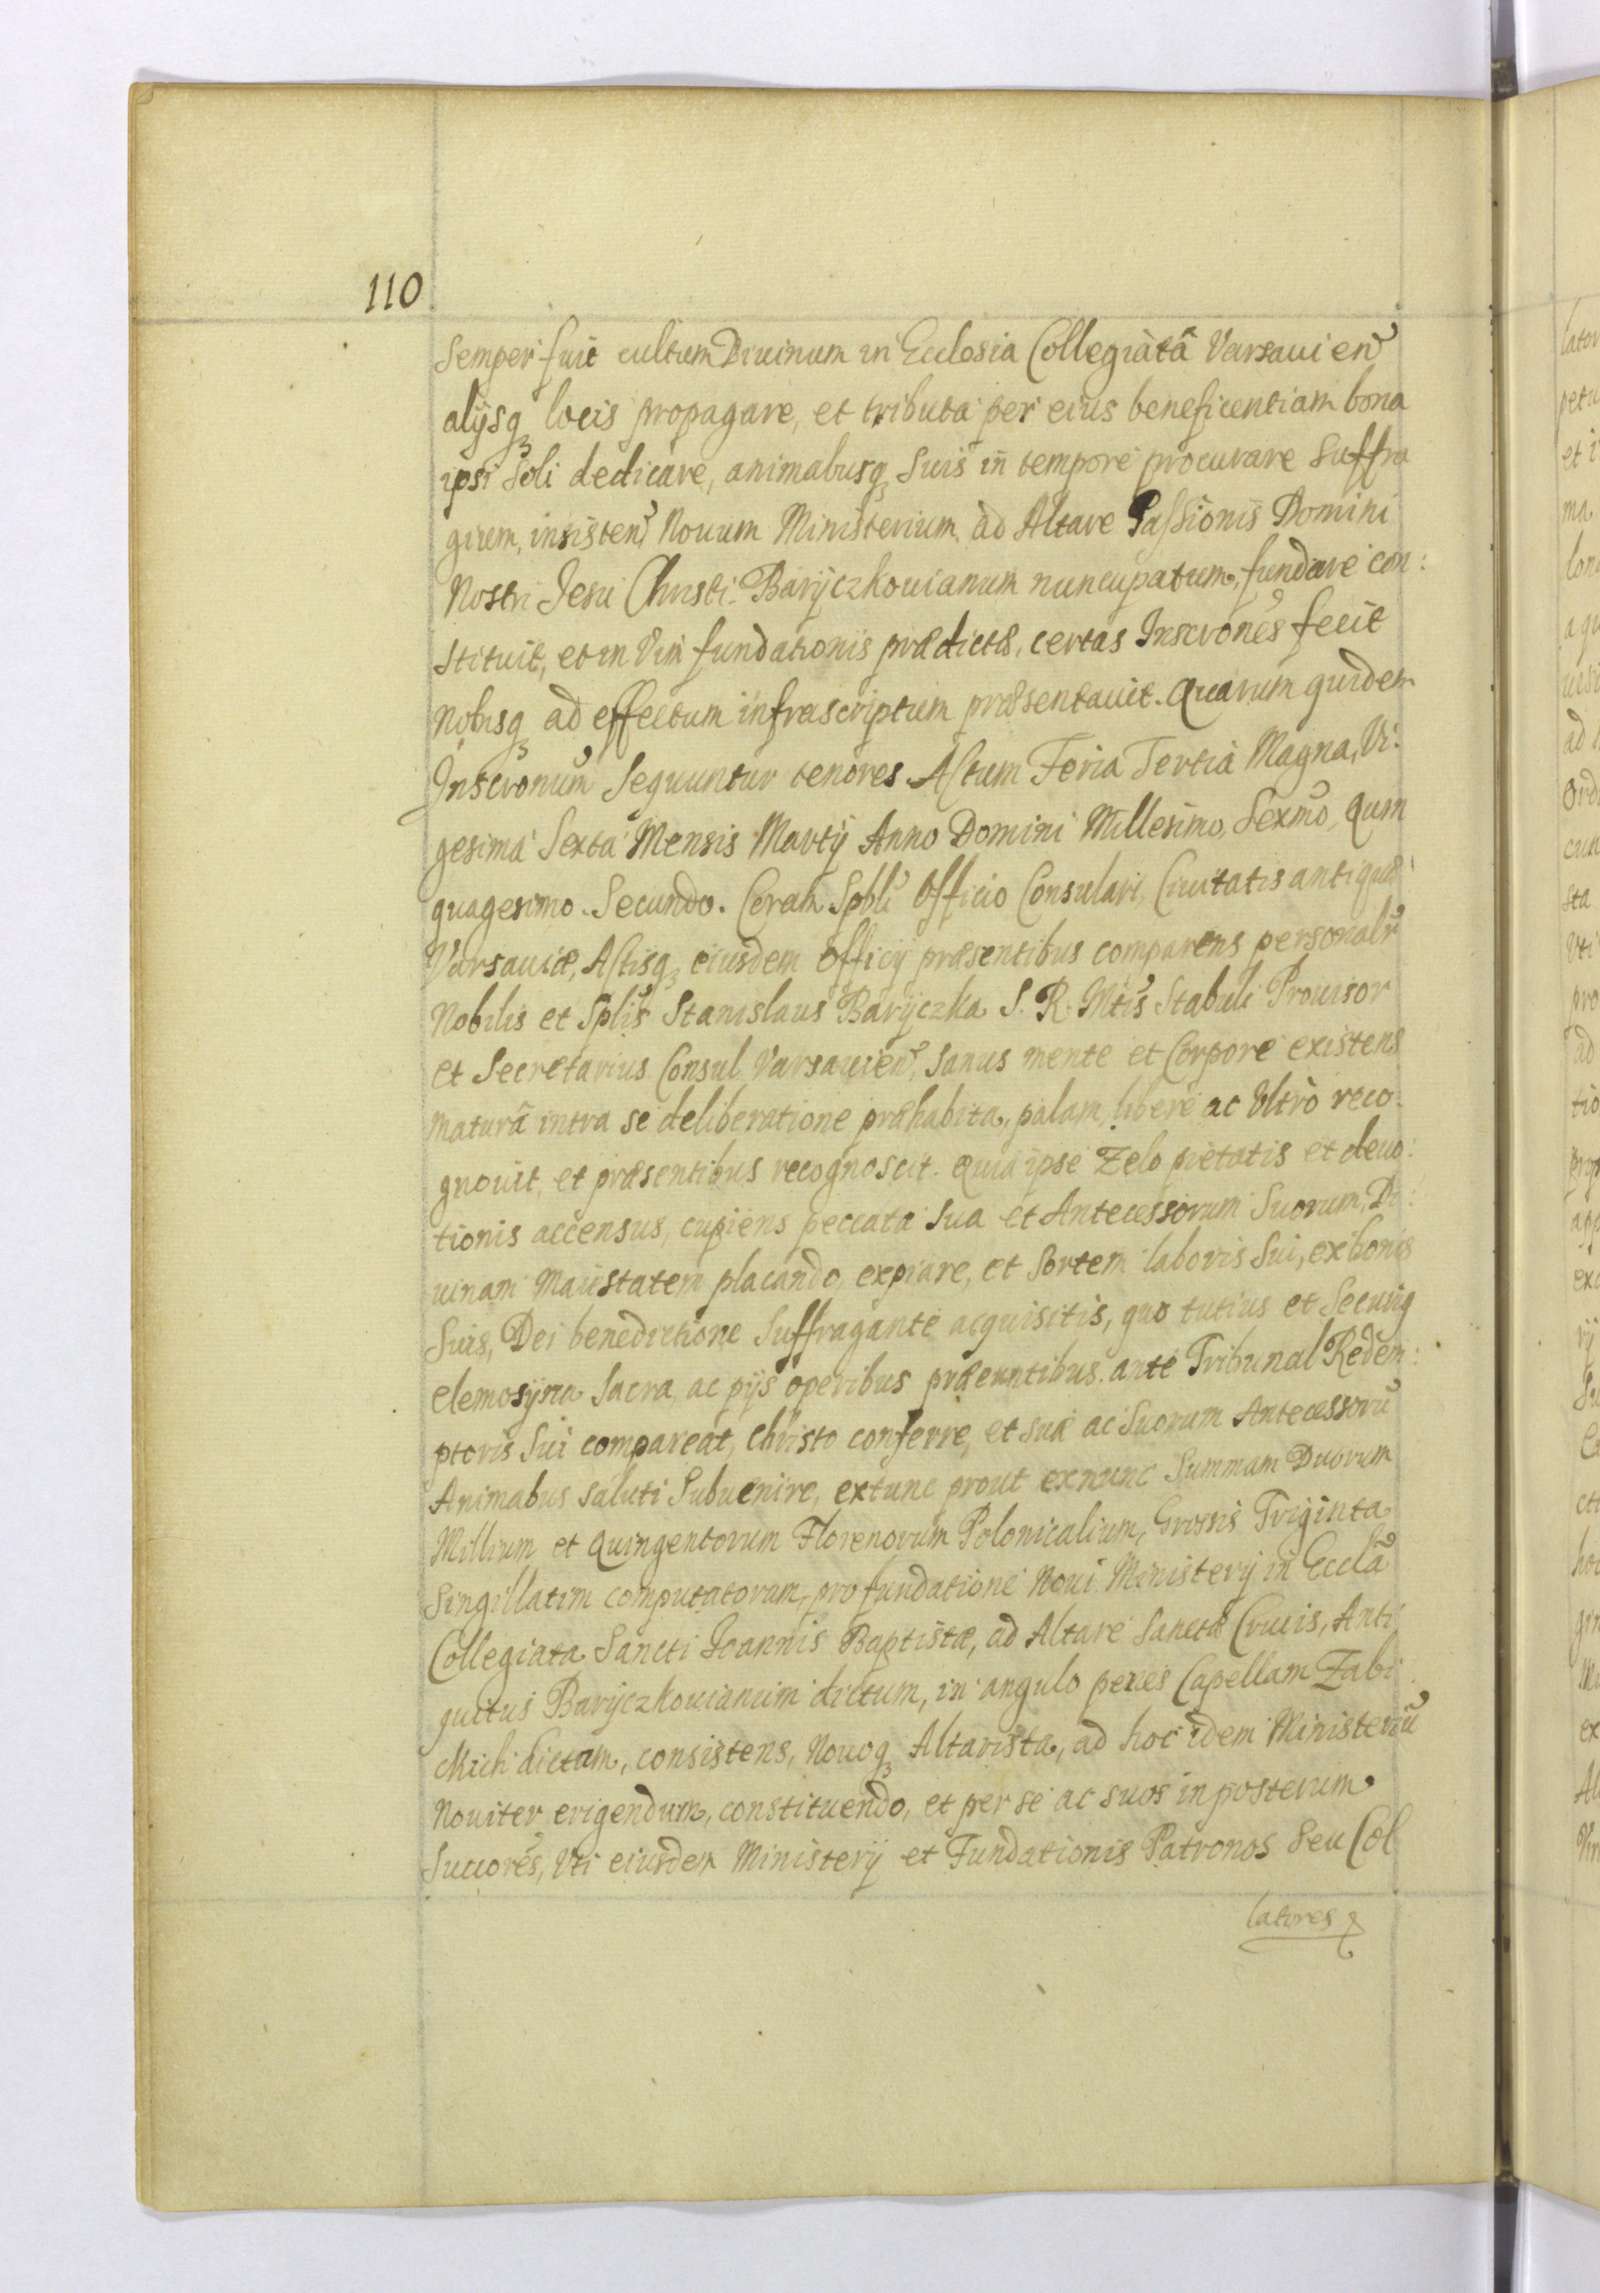 110
Semper fuit cultum Diuinum in Ecclesia Collegiatâ Varsauien̄
alijsq3 locis propagare, et tributa per eius beneficentiam bona
ipsi soli dedicare, animabusq3 suis in tempore procurare suffra
gium, insisten̄ Nouum Ministerium ad Altare Passionis Domini
Nostri Jesu Christi Baryczkouianum nuncupatum, fundare con:
stituit, et in Vim fundationis prædictæ, certas Inscr̄ones fecit
Nobisq3 ad effectum infrascriptum præsentauit. Quarum quidem
Inscr̄onum Sequuntur tenores Actum Feria Tertia Magna, Vi:
gesima Sexta Mensis Martij Anno Domini Millesimo, Sexm̄o, Quin
quagesimo Secundo. Coram Spbl̄i Officio Consulari, Ciuitatis antiquæ
Varsauiæ, Actisq3 eiusdem Officij præsentibus comparens personalr̄
Nobilis et Spl̄is Stanislaus Baryczka S. R. Mt̄is Stabuli Prouisor
et Secretarius Consul Varsauien̄, Sanus mente et Corpore existens
matura intra se deliberatione præhabita, palam, libere ac Vltrò reco:
gnouit, et præsentibus recognoscit. Quia ipse Zelo pietatis et deuo:
tionis accensus, cupiens peccata sua et Antecessorum Suorum, Di:
uinam Maiestatem placando, expiare, et Sortem laboris Sui, ex bonis
Suis, Dei benedictione Suffragante acquisitis, quo tutius et Securig
elemosyna Sacra, ac pijs operibus præeuntibus ante Tribunal Redem:
ptoris Sui compareat, Christo conferre, et sua ac Suorum Antecessorū
Animabus saluti Subuenire, extunc prout exnunc Summam Duorum
Millium et Quingentorum Florenorum Polonicalium, Grossis Triginta
Singillatim computatorum, pro fundatione Noui Ministerij in Eccl̄a
Collegiata Sancti Joannis Baptistæ, ad Altare Sanctæ Crucis, Anti
quitus Baryczkouianum dictum, in angulo penes Capellam Zabi
ckich dictam, consistens, Nouoq3 Altarista, ad hoc idem Ministeriū
Nouiter erigendum, constituendo, et per se ac suos inposterum
Succores, Vti eiusdem Ministerij et Fundationis Patronos Seu Col
latores